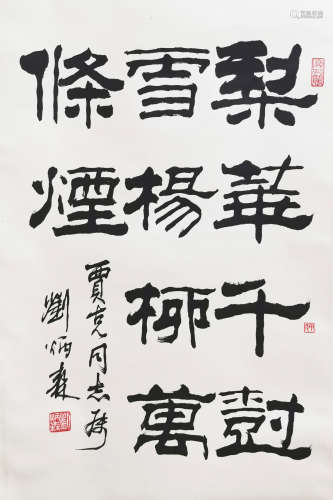 梨華千尌
雪楊栁萬
條煙
賈克同志屬
劉炳森